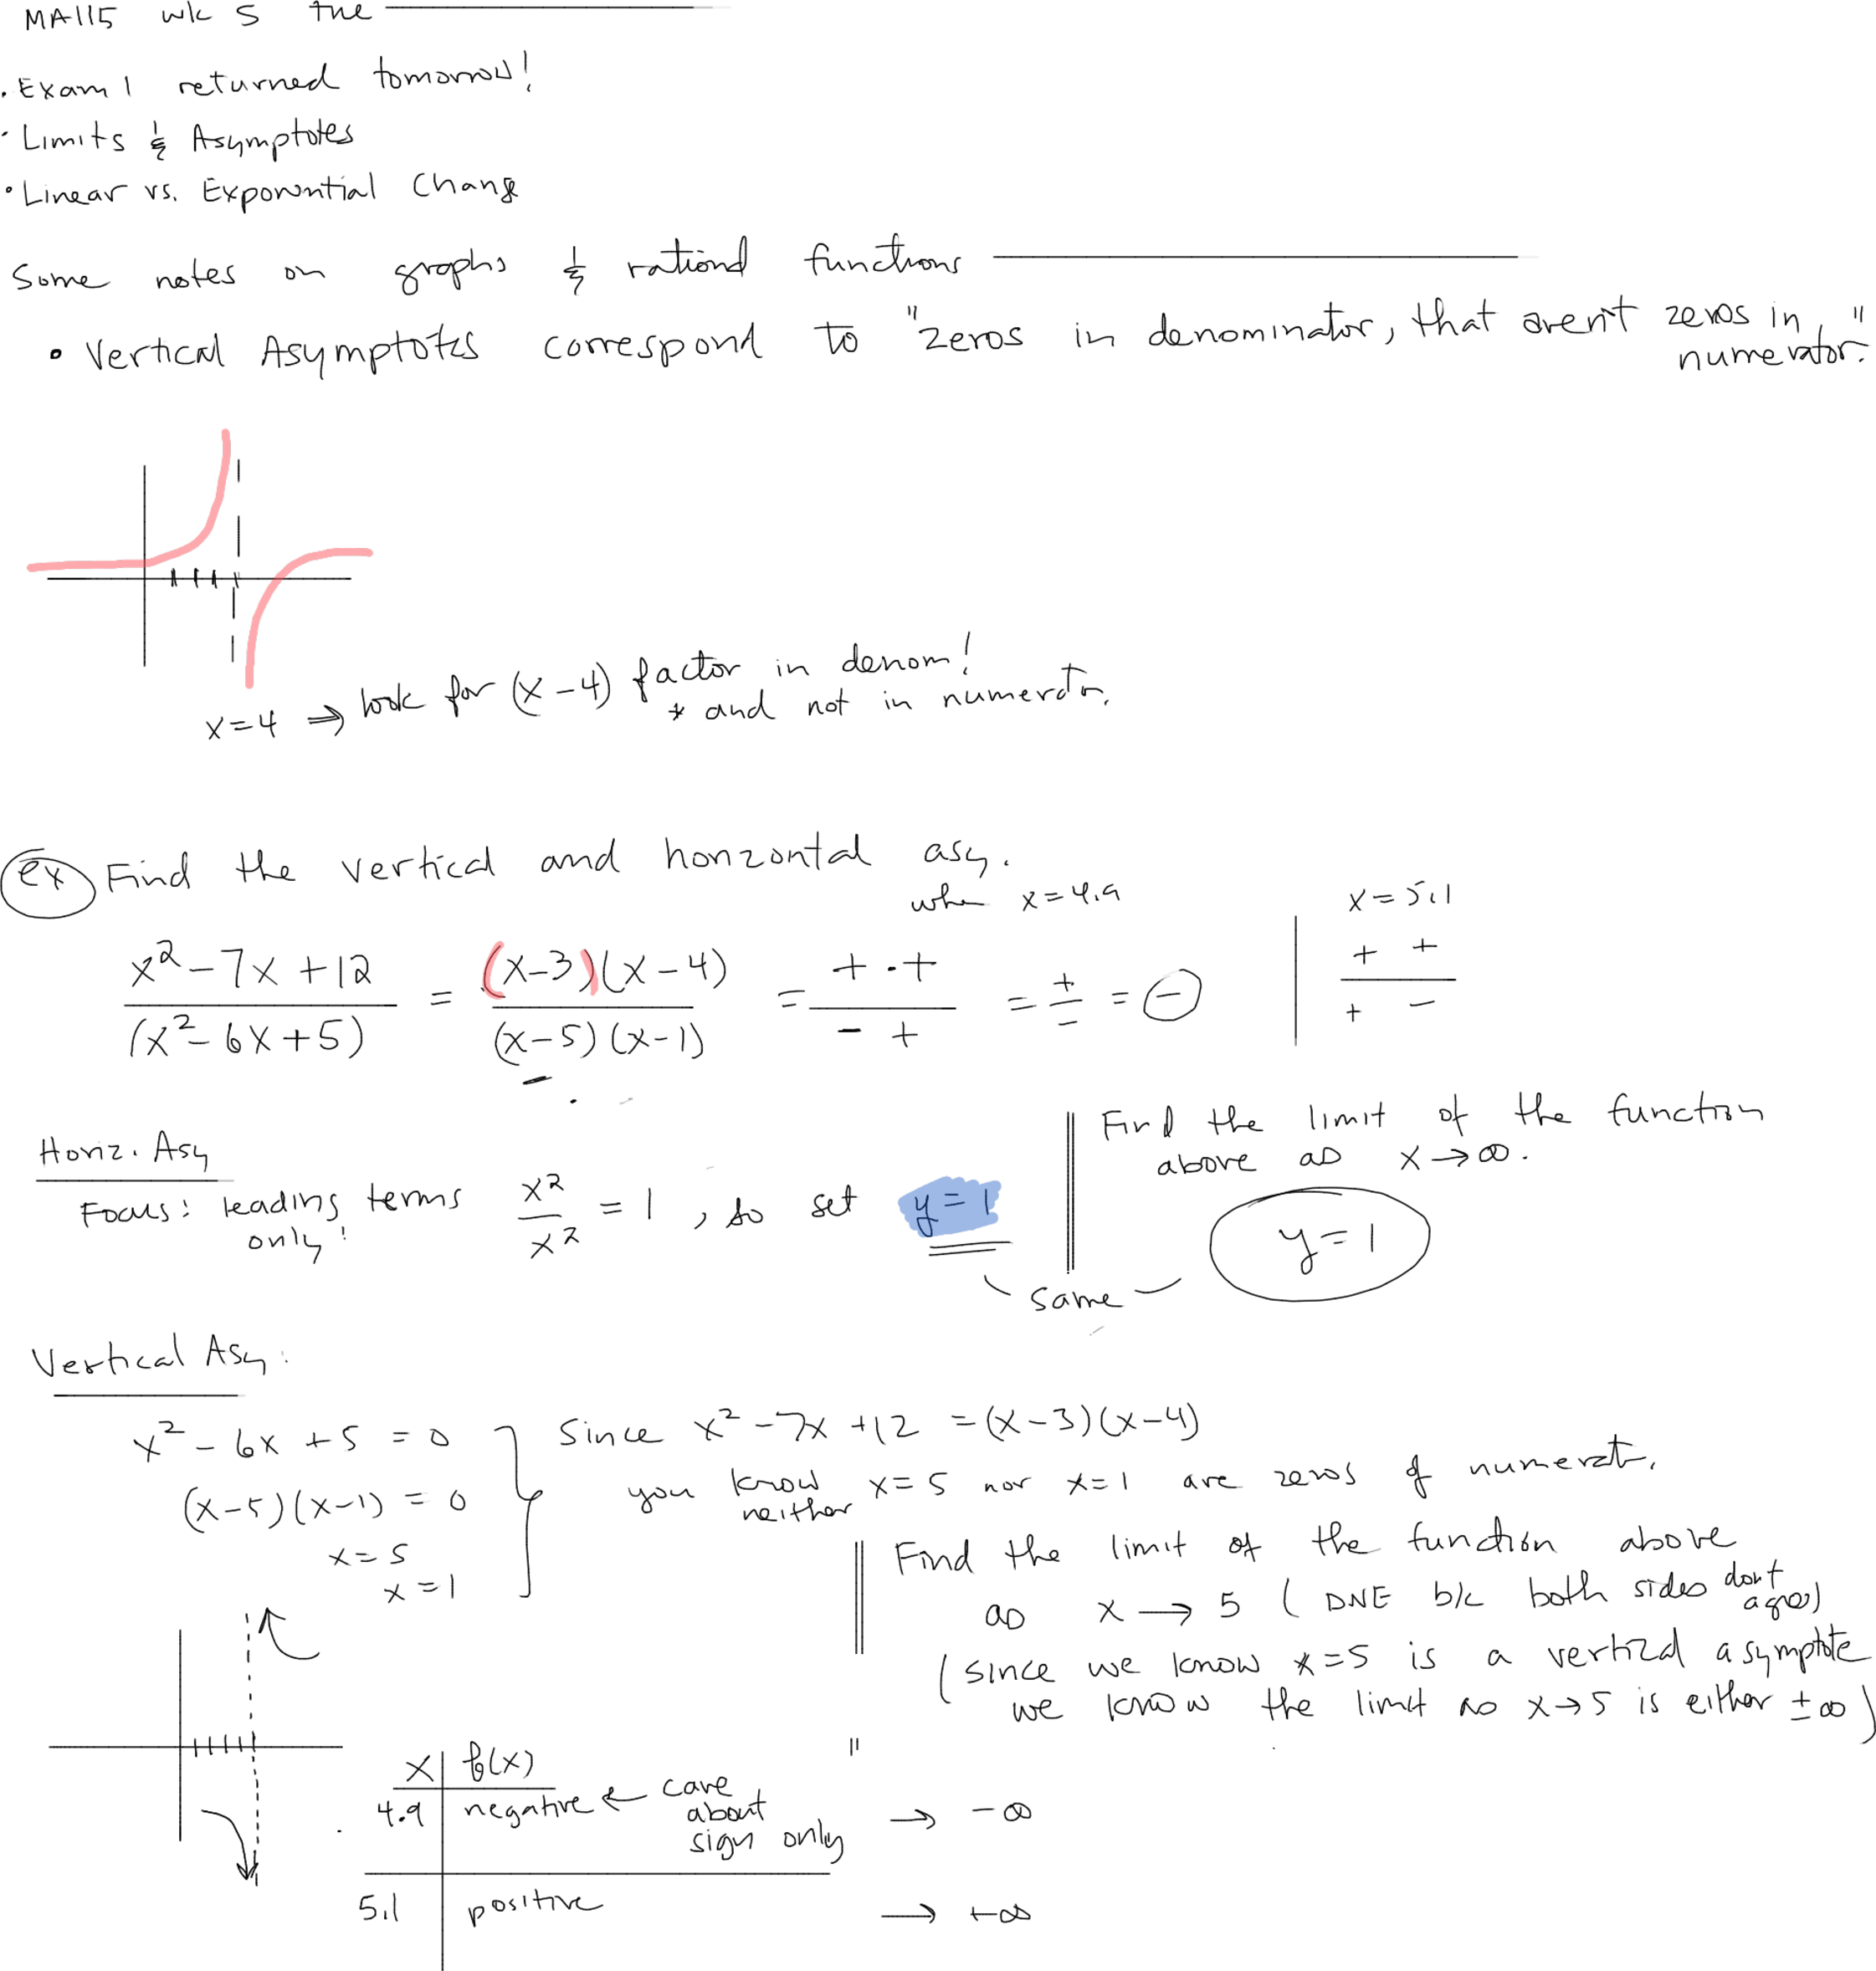 MA115 wk 5 the
• Exam 1 returned tomorrow!
• Limits & Asymptotes
• Linear vs. Exponential Change
Some notes on graphs & rational functions
• Vertical Asymptotes correspond to "zeros in denominator, that aren't zeros in numerator."
x=4 ⇒ look for (x-4) factor in denom!
* and not in numerator.
ex Find the vertical and horizontal asy.
when x=4.9 | x=5.1
(x²-7x+12)/(x²-6x+5) = ((x-3)(x-4))/((x-5)(x-1)) = (+ · +)/(- +) = +/- = ⊖ | (+ +)/(+ -)
Horiz. Asy
Focus: leading terms only! x²/x² = 1, so set y=1
Find the limit of the function
above as x→∞.
y=1
same
Vertical Asy:
x²-6x+5=0
(x-5)(x-1)=0
x=5
x=1
Since x²-7x+12 = (x-3)(x-4)
you know neither x=5 nor x=1 are zeros of numerat.
Find the limit of the function above
as x→5 (DNE b/c both sides don't agree)
(since we know x=5 is a vertical asymptote
we know the limit as x→5 is either ±∞)
x | f(x) "
4.9 | negative ← care about sign only → -∞
5.1 | positive → +∞